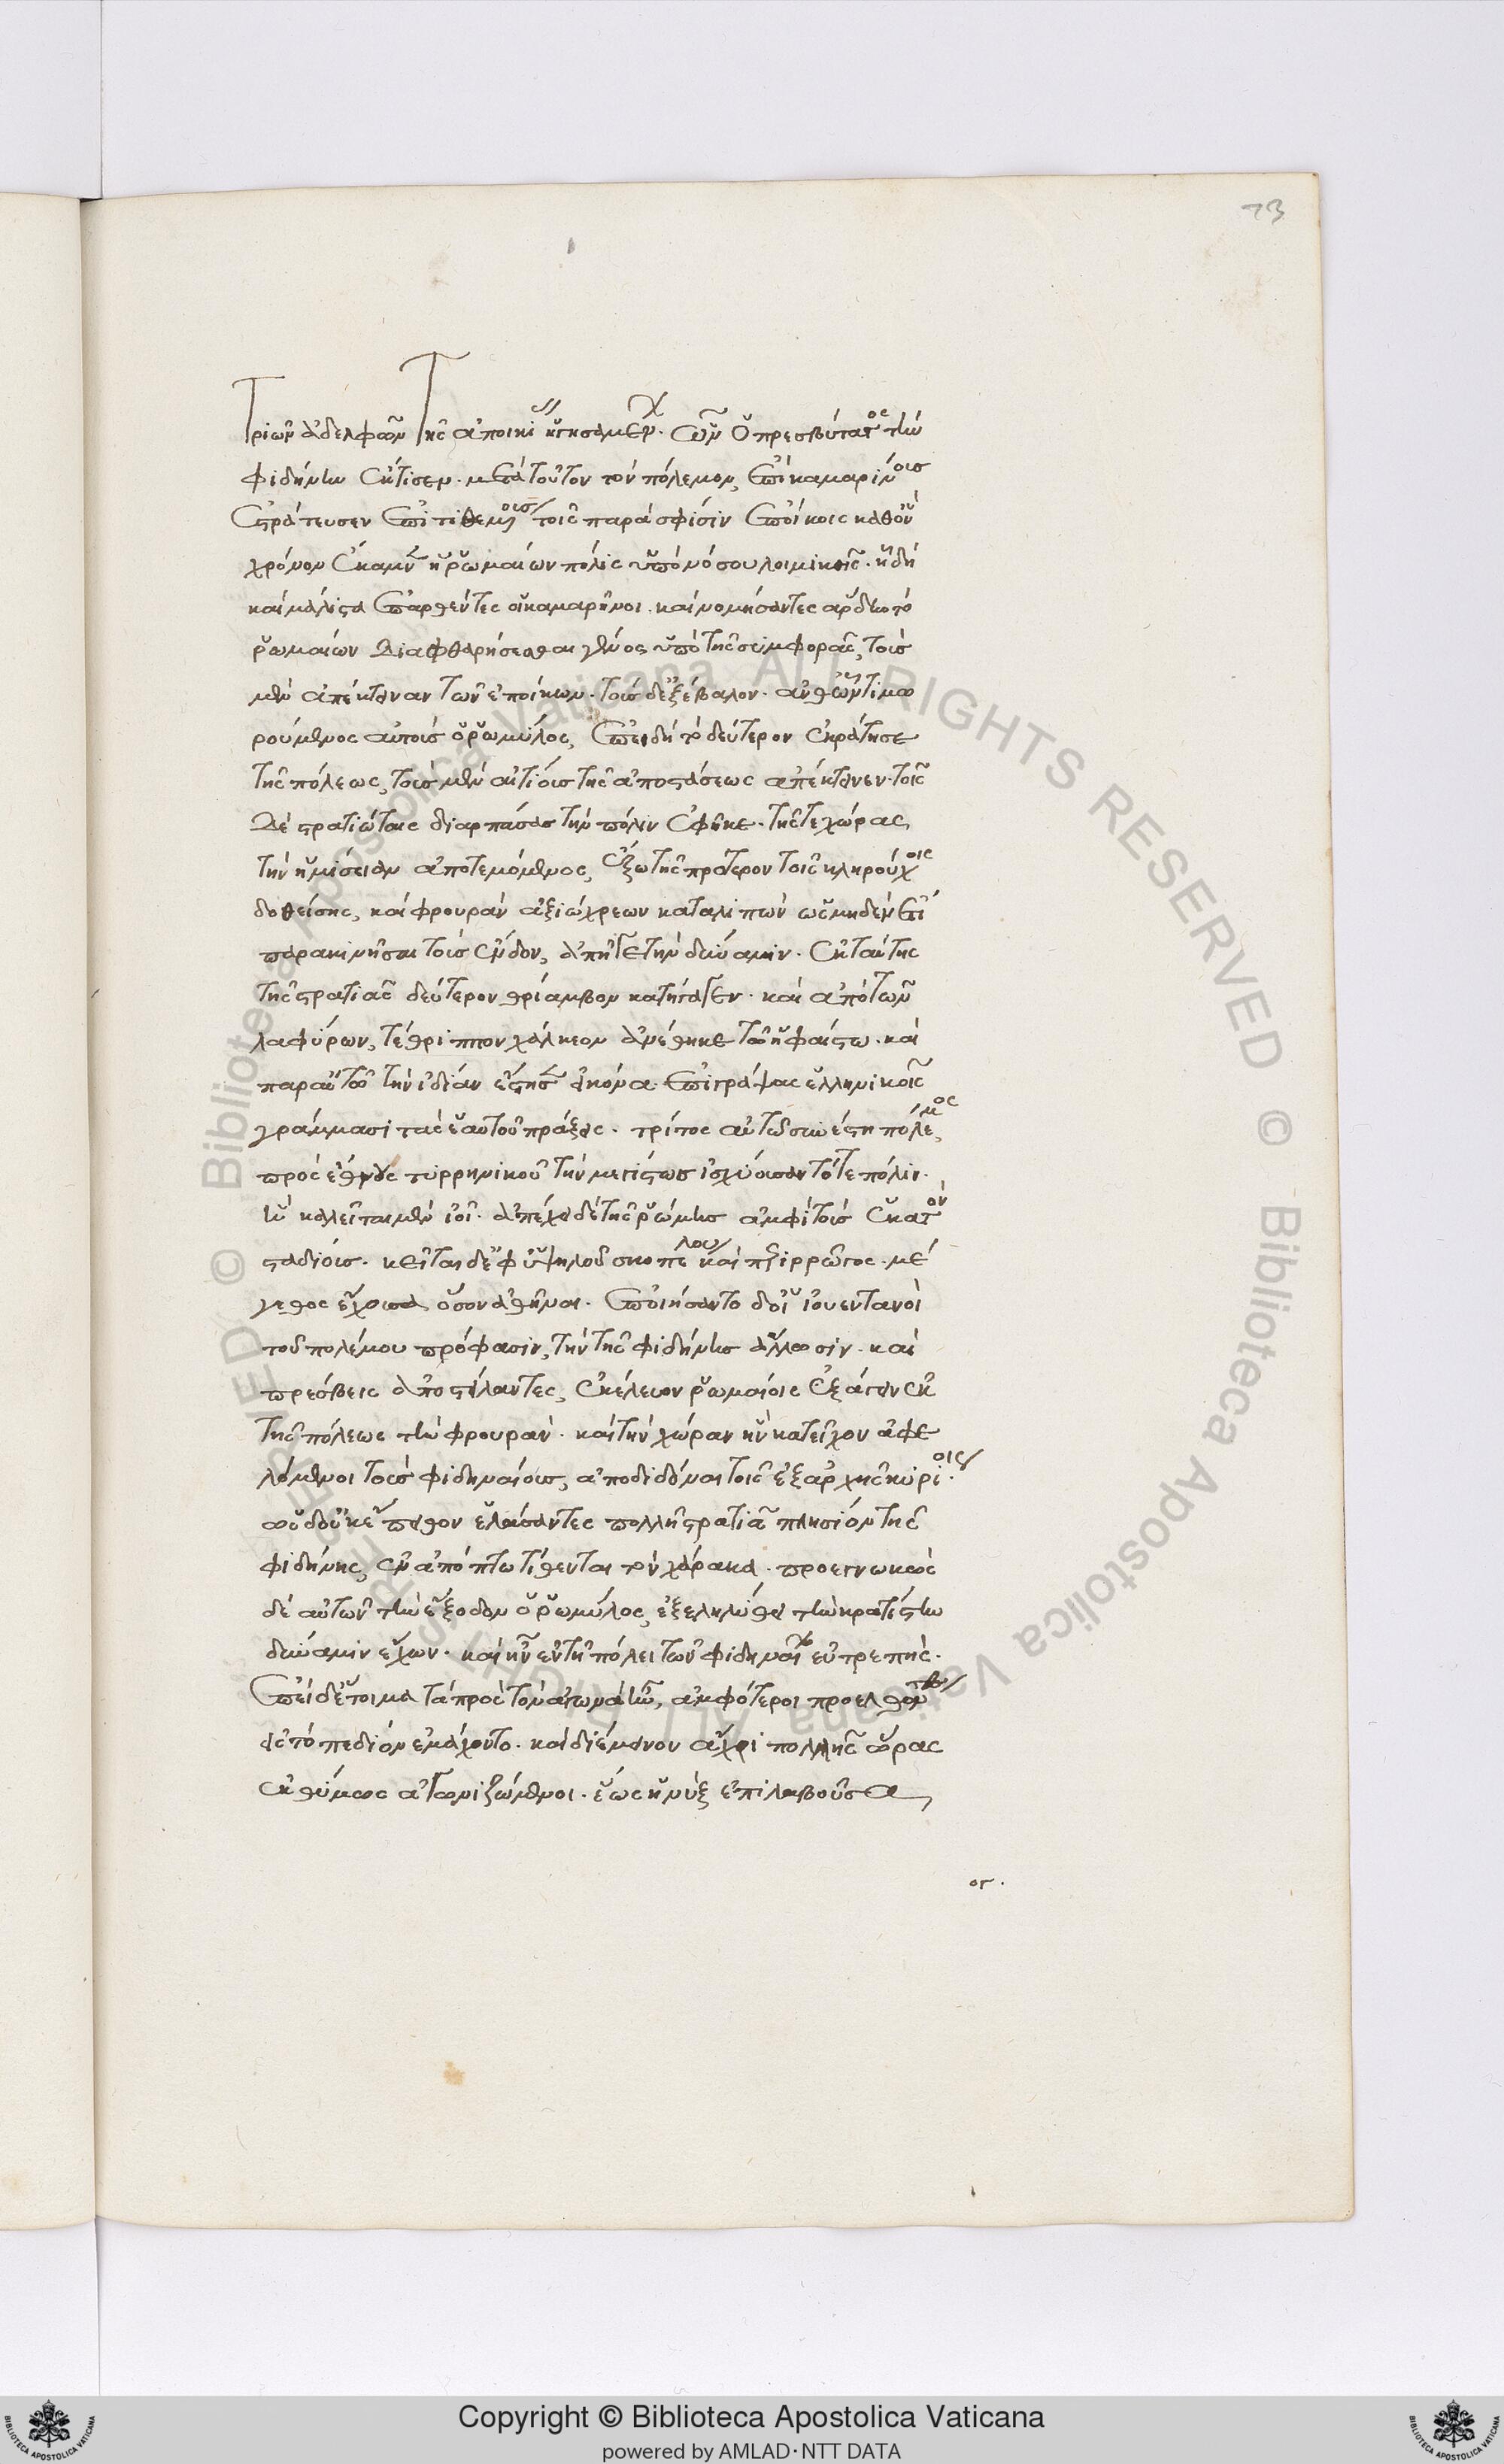 73
Τριῶν ἀδελφῶν τῆς ἀποικίας κτησαμένων. ὧν ὁ πρεσβύτατος τὴν
φιδήνην ἔκτισεν. μετὰ τοῦτον τὸν πόλεμον, ἐπὶ καμαρίνοις
ἐστράτευσεν ἐπιτιθεμένοις τοῖς παρὰ σφίσιν ἐποίκοις καθ' ὃν
χρόνον ἔκαμνεν ἡ ῥωμαίων πόλις ὑπὸ νόσου λοιμικῆς. ᾗ δὴ
καὶ μάλιστα ἐπαρθέντες οἱ καμαρῖνοι. καὶ νομίσαντες ἄρδην τὸ
ῥωμαίων διαφθαρήσεσθαι γένος ὑπὸ τῆς συμφορᾶς, τοὺς
μὲν ἀπέκταναν τῶν ἐποίκων. τοὺς δ' ἐξέβαλον. ἀνθ' ὧν τιμω
ρούμενος αὐτοὺς ὁ ῥωμύλος, ἐπειδὴ τὸ δεύτερον ἐκράτησε
τῆς πόλεως, τοὺς μὲν αἰτίους τῆς ἀποστάσεως ἀπέκτανεν. τοῖς
δὲ στρατιώταις διαρπάσαι τὴν πόλιν ἐφῆκε. τῆς τε χώρας
τὴν ἡμίσειαν ἀποτεμόμενος, ἔξω τῆς πρότερον τοῖς κληρούχοις
δοθείσης, καὶ φρουρὰν ἀξιόχρεων καταλιπὼν ὡς μηδὲν ἔτι
παρακινῆσαι τοὺς ἔνδον, ἀπῆγε τὴν δύναμιν. ἐκ ταύτης
τῆς στρατιᾶς δεύτερον θρίαμβον κατήγαγεν. καὶ ἀπὸ τῶν
λαφύρων, τέθριππον χάλκεον ἀνέθηκε τῷ ἡφαίστω. καὶ
παρ' αὐτῷ τὴν ἰδίαν ἔστησεν εἰκόνα ἐπιγράψας ἑλληνικοῖς
γράμμασι τὰς ἑαυτοῦ πράξεις. τρίτος αὐτῷ συνέστη πόλεμος
πρὸς ἔθνους τυρρηνικοῦ τὴν μέγιστον ἰσχύουσαν τότε πόλιν.
ἣ καλεῖται μὲν ἰοί. ἀπέχει δὲ τῆς ῥώμης ἀμφὶ τοὺς ἑκατὸν
σταδίους. κεῖται δ' ἐφ' ὑψηλοῦ σκοπέλου καὶ περιρρῶγος. μέ
γεθος ἔχουσα, ὅσον ἀθῆναι. ἐποιήσαντο δ' οἱ ἰουεντανοὶ
τοῦ πολέμου πρόφασιν, τὴν τῆς φιδήνης ἅλωσιν. καὶ
πρέσβεις ἀποστείλαντες, ἐκέλευον ῥωμαίοις ἐξάγειν ἐκ
τῆς πόλεως τὴν φρουράν. καὶ τὴν χώραν ἣν κατεῖχον ἀφε
λόμενοι τοὺς φιδηναίους, ἀποδιδόναι τοῖς ἐξ ἀρχῆς κυρίοις.
ὡς δ' οὐκ ἔπειθον ἐλάσαντες πολλῇ στρατιᾷ πλησίον τῆς
φιδήνης, ἐν ἀπόπτω τίθενται τὸν χάρακα. προεγνωκὼς
δὲ αὐτῶν τὴν ἔξοδον ὁ ῥωμύλος, ἐξεληλύθει τὴν κρατίστην
δύναμιν ἔχων. καὶ ἦν ἐν τῇ πόλει τῶν φιδηναίων εὐτρεπής.
ἐπεὶ δ' ἕτοιμα τὰ πρὸς τὸν ἀγῶνα ἦν, ἀμφότεροι προελθόντες
εἰς τὸ πεδίον ἐμάχοντο. καὶ διέμενον ἄχρι πολλῆς ὥρας
ἐκθύμως ἀγωνιζόμενοι. ἕως ἡ νὺξ ἐπιλαβοῦσα
ογ.
Copyright © Biblioteca Apostolica Vaticana
powered by AMLAD·NTT DATA